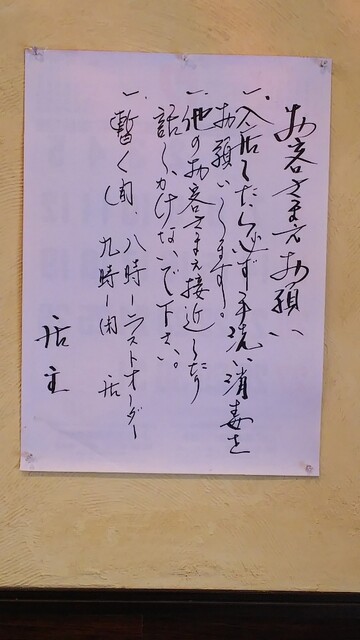 お客さまえお願い
一、入店したら必ず手洗い消毒を
お願いします。
一、他のお客さまえ接近したり
話しかけないで下さい。
一、暫く間、八時ーラストオーダー
九時ー閉店
店主